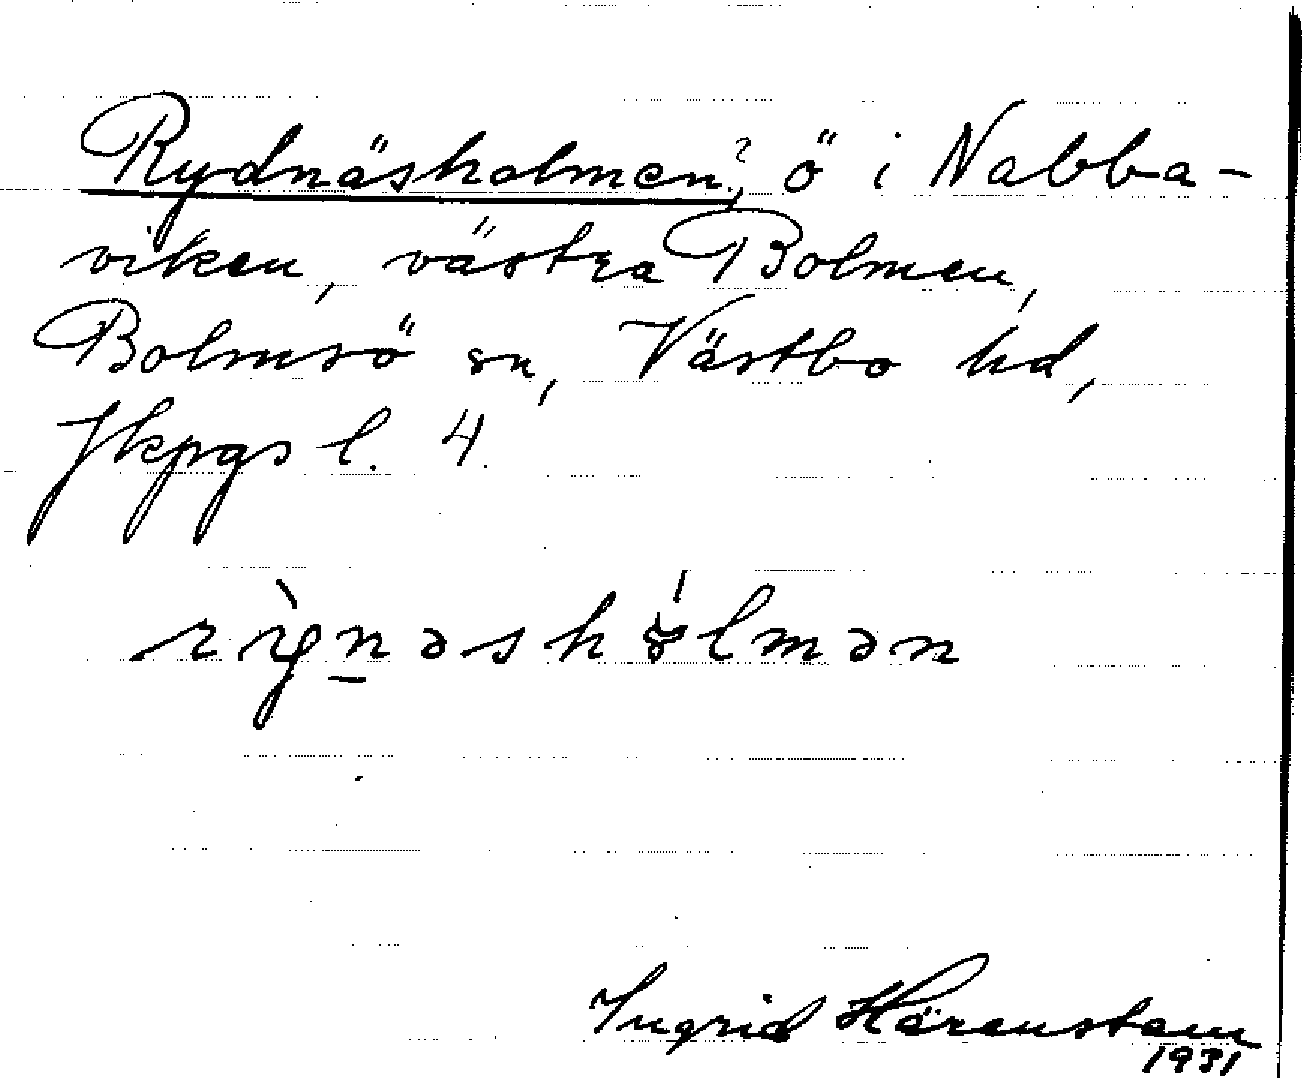 Rydnäsholmen?, ö i Nabba-
viken, västra Bolmen,
Bolmsö sn, Västbo hd,
Jkpgs l. 4.
rỳnəshólmən
Ingrid Härenstam
1931